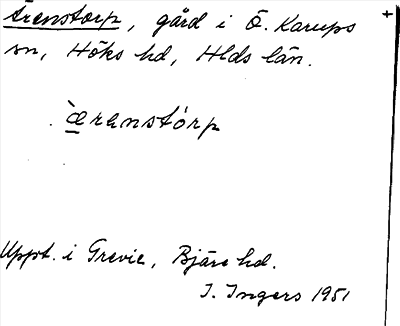 Ärenstorp, gård i Ö. Karups +
sn, Höks hd, Hlds län.
æ̀ranstórp
Uppt. i Grevie, Bjäre hd.
I. Ingers 1951